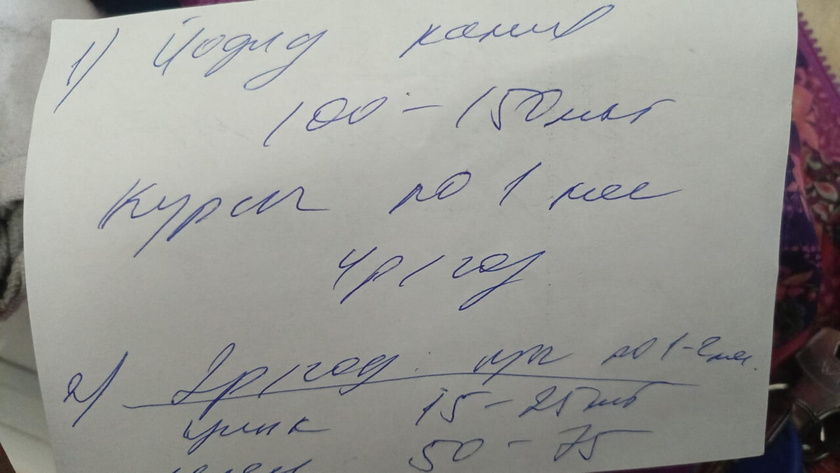 1) Йодид калия
100-150мкг
Курсы по 1 мес
4р/год
2) 2р/год: по 1-2 мес.
цинк 15-25мг
50-75